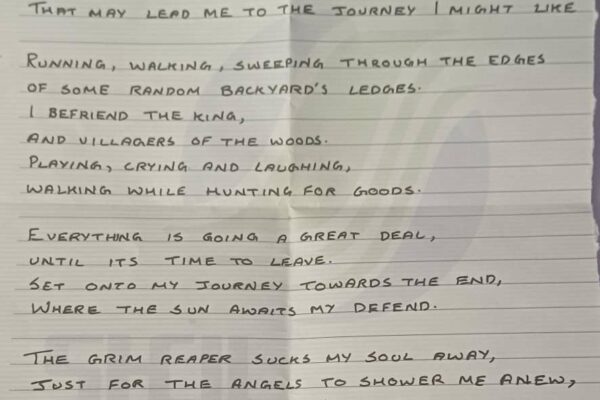 THAT MAY LEAD ME TO THE JOURNEY I MIGHT LIKE
RUNNING, WALKING, SWEEPING THROUGH THE EDGES
OF SOME RANDOM BACKYARD'S LEDGES.
I BEFRIEND THE KING,
AND VILLAGERS OF THE WOODS.
PLAYING, CRYING AND LAUGHING,
WALKING WHILE HUNTING FOR GOODS.
EVERYTHING IS GOING A GREAT DEAL,
UNTIL ITS TIME TO LEAVE.
SET ONTO MY JOURNEY TOWARDS THE END,
WHERE THE SUN AWAITS MY DEFEND.
THE GRIM REAPER SUCKS MY SOUL AWAY,
JUST FOR THE ANGELS TO SHOWER ME ANEW,